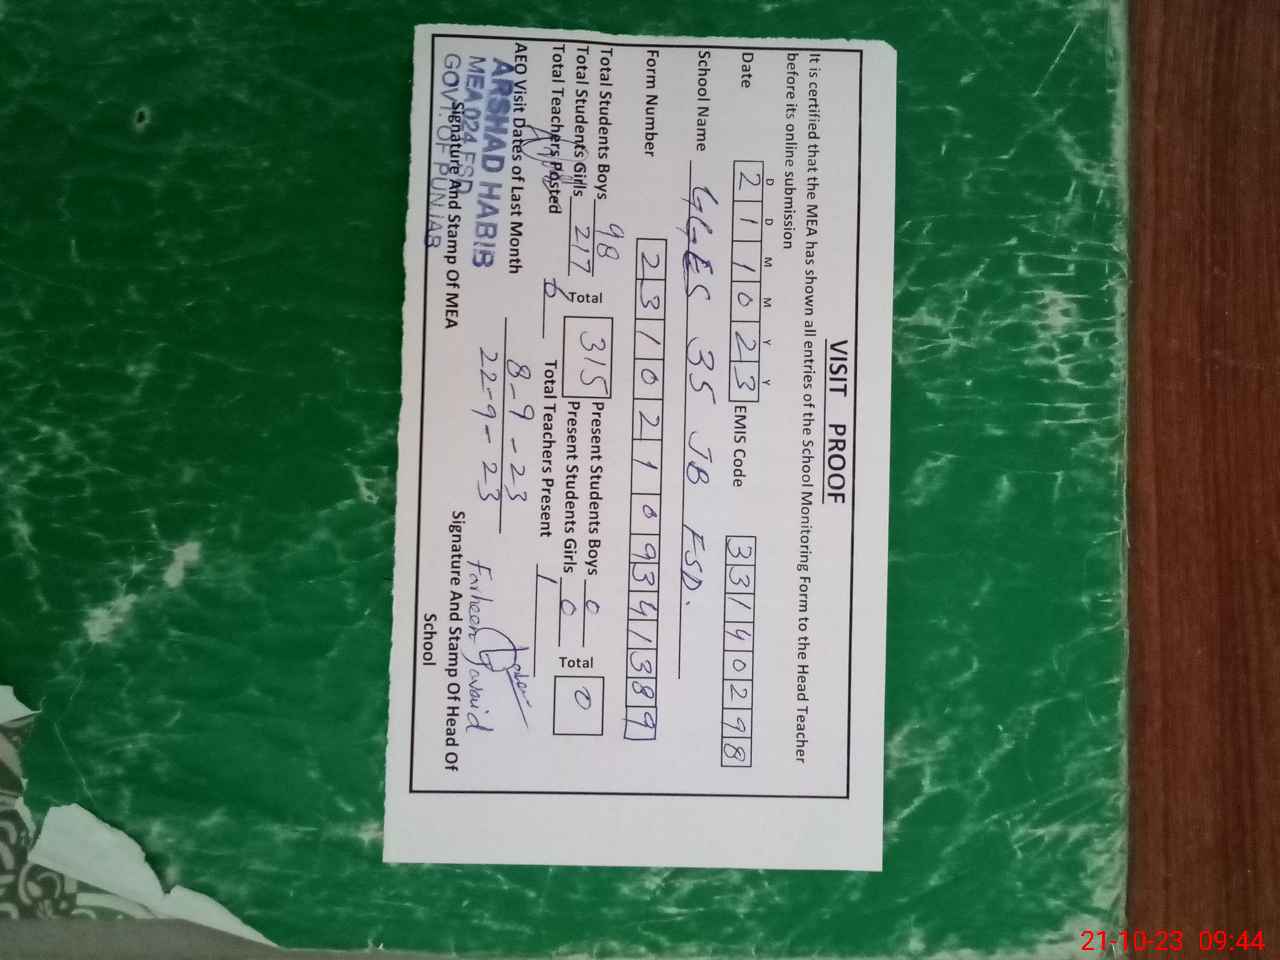 VISIT PROOF
It is certified that the MEA has shown all entries of the School Monitoring Form to the Head Teacher
before its online submission
D D M M Y Y
Date 2 1 1 0 2 3 EMIS Code 3 3 1 4 0 2 9 8
School Name GGES 35 JB FSD.
Form Number 2 3 1 0 2 1 0 9 3 4 1 3 8 9
Total Students Boys 98 Total 315 Present Students Boys 0 Total 0
Total Students Girls 217 Present Students Girls 0
Total Teachers Posted 6 Total Teachers Present 1
AEO Visit Dates of Last Month 8-9-23
22-9-23
ARSHAD HABIB
MEA 024 FSD
GOVT. OF PUNJAB
Farheen Javaid
Signature And Stamp Of MEA
Signature And Stamp Of Head Of
School
21-10-23 09:44